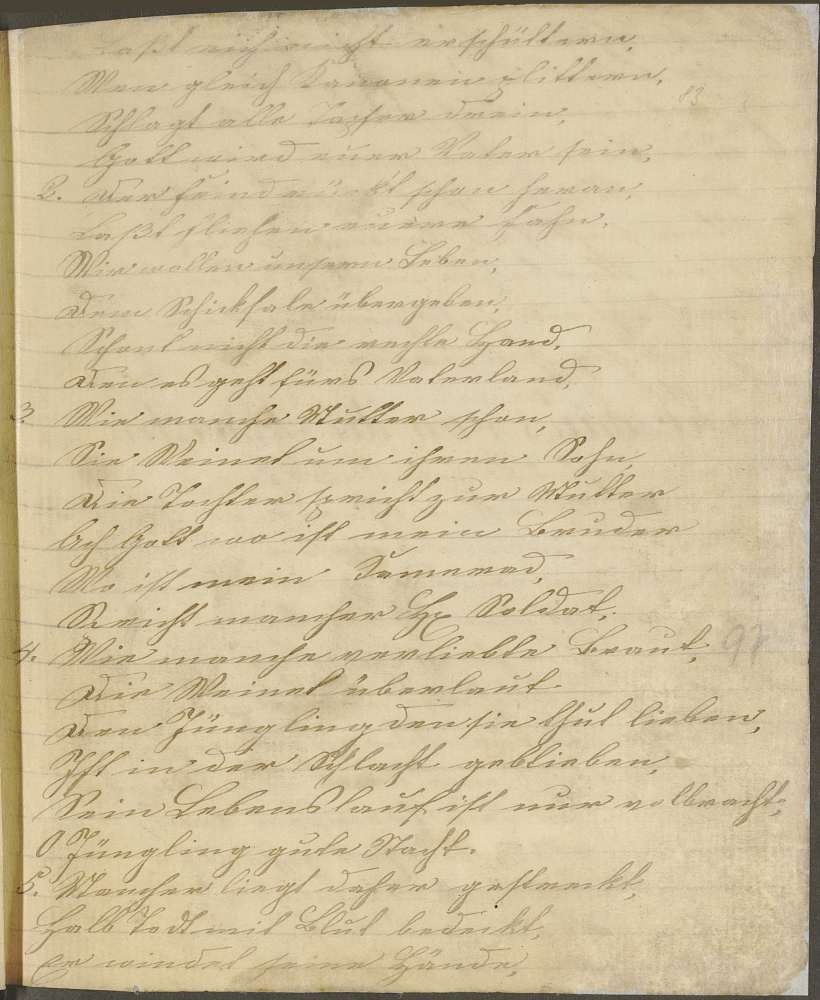 Laßt euch nicht erschüttern,
Wen gleich Kanonen zlittern,
83
Schlagt alle Tapfer drein,
Gott wird euer Vater sein,
2. Der Feind rückt schon heran,
Laßt fliehen euere Fahn,
Wir wollen unsern Leben,
Dem Schicksale übergeben,
Schont nicht die rechte Hand,
Den es geht fürs Vaterland,
3. Wie manche Mutter schon,
Sie Weinet um ihren Sohn,
Die Tochter spricht zur Mutter
Ach Gott wo ist mein Bruder
Wo ist mein Kamerad,
Spricht mancher Soldat,
4. Wie manche verliebte Braut,
97
Die Weinet überlaut
Den Jüngling den sie thut lieben,
Ist in der Schlacht geblieben,
Sein Lebenslauf ist nur volbracht,
O Jüngling gute Nacht.
5. Mancher liegt daher gestreckt,
Halb Todt mit Blut bedeckt,
Er windet seine Hände,